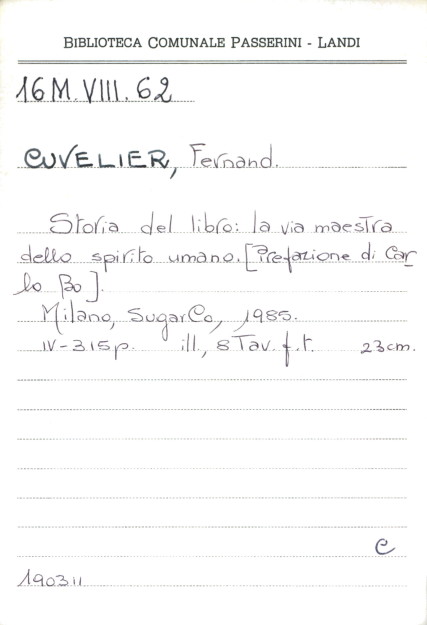 BIBLIOTECA COMUNALE PASSERINI - LANDI
16 M. VIII. 62
CUVELIER, Fernand.
Storia del libro: la via maestra
dello spirito umano. [Prefazione di Car
lo Bo].
Milano, SugarCo, 1985.
IV-315 p. ill., 8 Tav. f.t. 23 cm.
C
190311